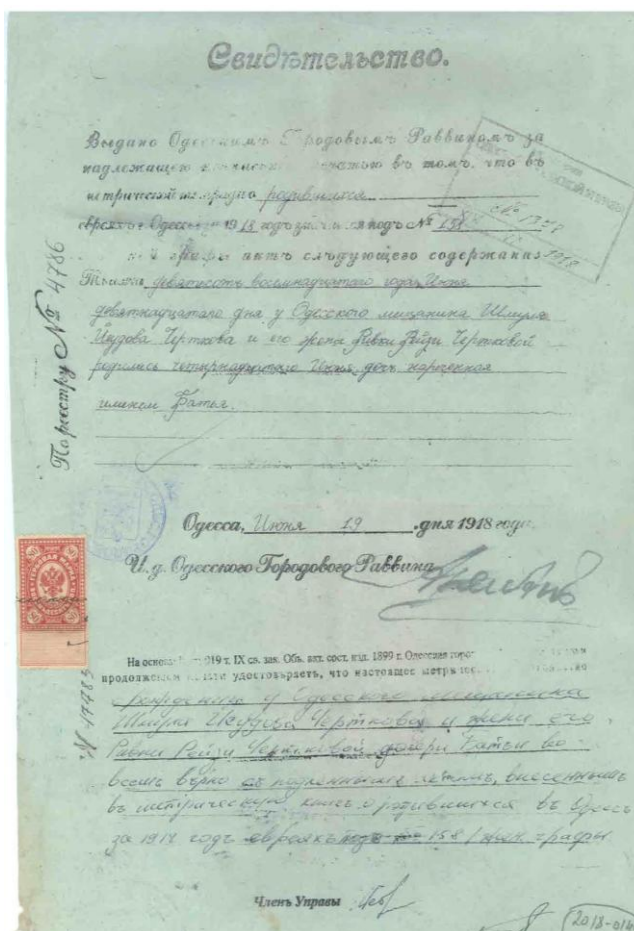 Свидѣтельство.
Выдано Одесскимъ Городовымъ Раввиномъ за
надлежащею печатью въ томъ, что въ
метрической родившихся
евреяхъ Одессы 1918 годъ подъ № 158
графы актъ слѣдующаго содержанія
Тысяча девятьсотъ восемнадцатаго года, Июня
девятнадцатаго дня у Одесского мещанина Шмуля
Черткова и его жены Ривки Рейзи Чертковой
родилась четырнадцатаго Июня дочь нареченная
именем Батья.
По реестру № 4786
№ 1958
1918
Одесса, Июня 19 дня 1918 года.
И. д. Одесского Городового Раввина
На основ 919 т. IX св. зак. Объ. акт. сост. изд. 1899 г. Одесская горо
удостовѣряетъ, что настоящее метриче
о рожденіи у Одесского
Шмуля Черткова и жены его
Ривки Рейзи Чертковой дочери Батьи во
всемъ вѣрно съ подлиннымъ актомъ, внесеннымъ
въ метрическую книгу о родившихся въ Одессѣ
за 1918 годъ евреяхъ подъ № 158 / жен. графы
№ 47483
Членъ Управы
2018-014